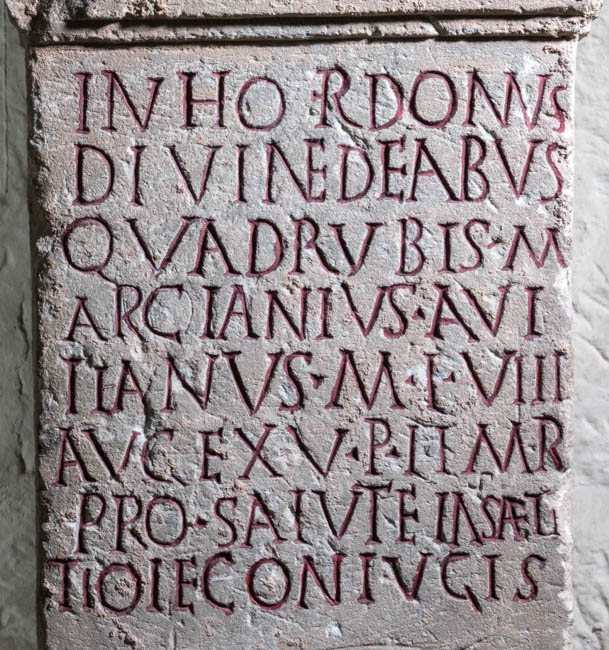 IN H O R DOMVS
DIVINE DEABVS
QVADRVBIS·M
ARCIANIVS·AVI
TIANVS·M·L·VIII
AVG EX V·P·IT M R
PRO·SALVTE IVSAE LI
TIOIE CONIVGIS